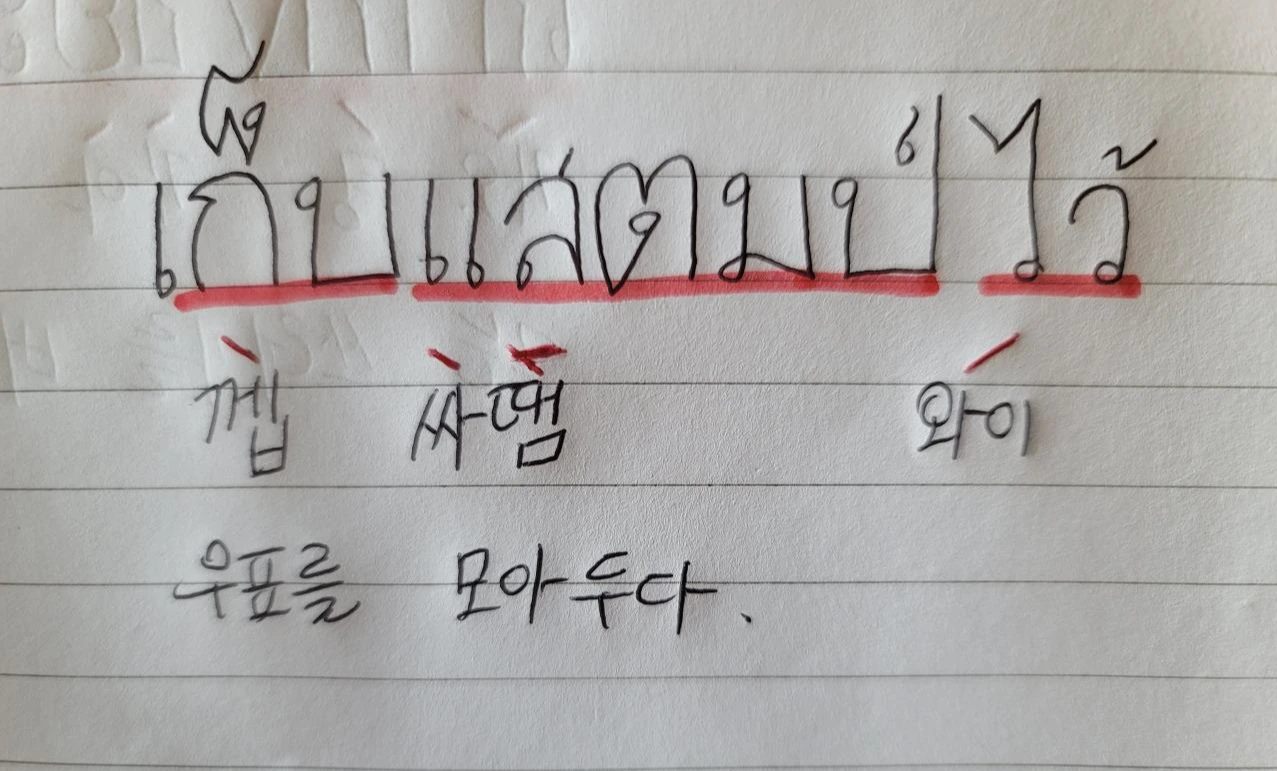 เก็บแสตมป์ไว้
껩 싸땜 와이
우표를 모아두다.